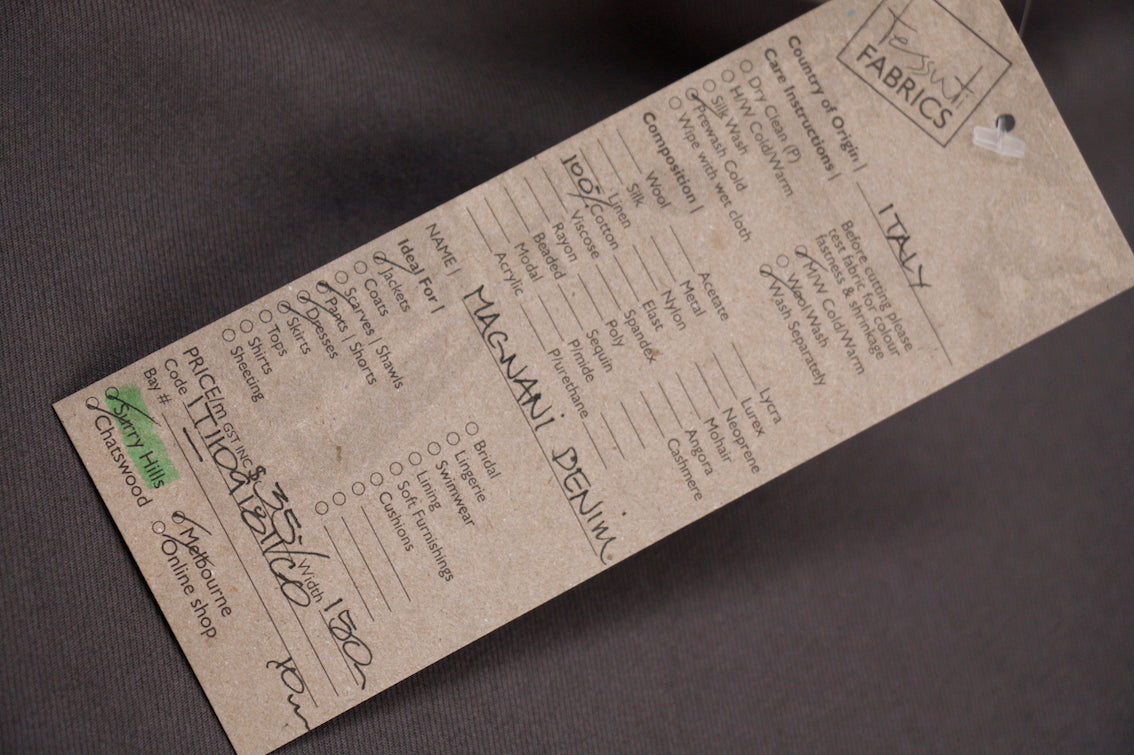 tessuti
FABRICS
Country of Origin | ITALY
Care Instructions |
Dry Clean (P)
H/W Cold/Warm
Silk Wash
Prewash Cold
Wipe with wet cloth
Before cutting please
test fabric for colour
fastness & shrinkage
M/W Cold/Warm
Wool Wash
Wash Separately
Composition |
Wool
Silk
Linen
100% Cotton
Viscose
Rayon
Beaded
Modal
Acrylic
Acetate
Metal
Nylon
Elast
Spandex
Poly
Sequin
P/mide
P/urethane
Lycra
Lurex
Neoprene
Mohair
Angora
Cashmere
NAME | MAGNANI DENIM
Ideal For |
Jackets
Coats
Scarves | Shawls
Pants | Shorts
Dresses
Skirts
Tops
Shirts
Sheeting
Bridal
Lingerie
Swimwear
Lining
Soft Furnishings
Cushions
PRICE/m GST INC $35/ Width 150
Code
Bay #
Surry Hills
Chatswood
Melbourne
Online shop
10m